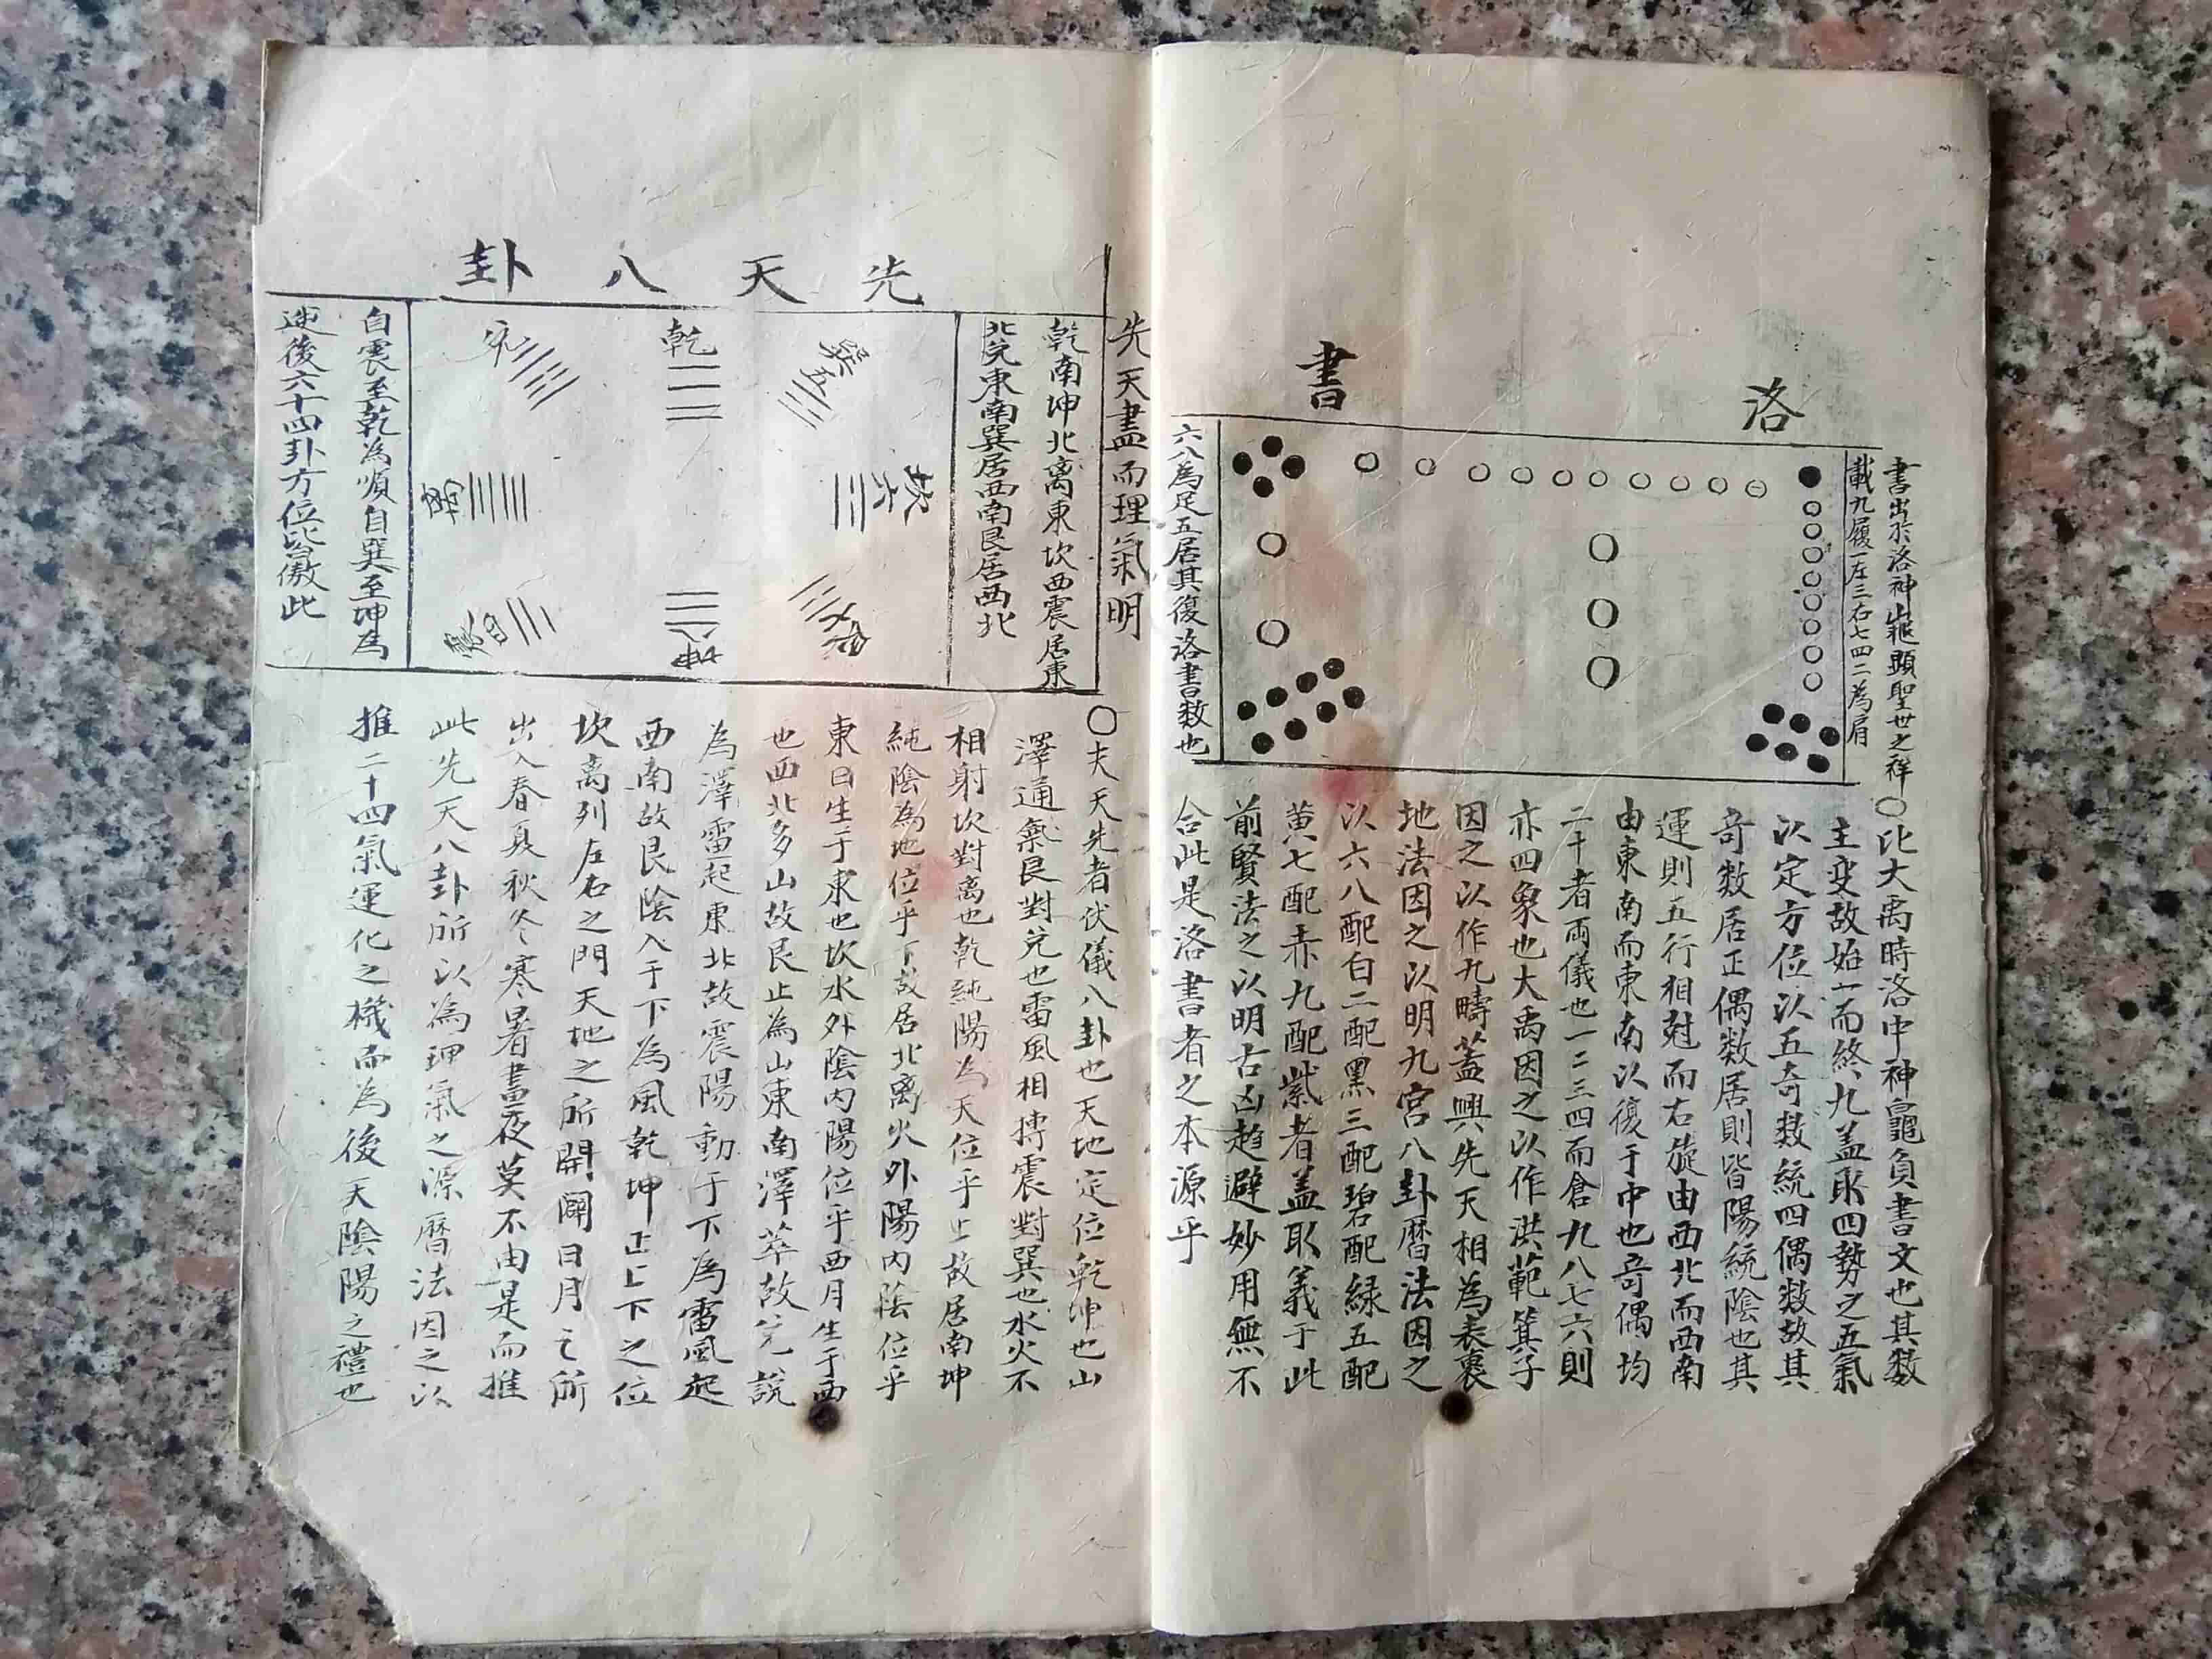 洛書
書出於洛神龜顯聖世之祥
載九履一左三右七四二為肩
六八為足五居其復洛書数也
〇比大禹時洛中神龜負書文也其数
主变故始一而終九盖取四勢之五氣
以定方位以五奇数統四偶数故其
奇数居正偶数居則皆陽統陰也其
運則五行相尅而右旋由西北而西南
由東南而東南以復于中也奇偶均
二十者両儀也一二三四而倉九八七六則
亦四象也大禹因之以作洪範箕子
因之以作九疇蓋興先天相為表裏
地法因之以明九宮八卦曆法因之
以六八配白二配黑三配碧配綠五配
黄七配赤九配紫者盖取義于此
前賢法之以明古凶趋避妙用無不
合此是洛書者之本源乎
先天盡而理氣明
先天八卦
乾南坤北离東坎西震居東
北兌東南巽居西南艮居西北
巽五
乾一
兌二
坎六
坤
自震至乾為順自巽至坤為
逆後六十四卦方位皆倣此
〇夫天先者伏儀八卦也天地定位乾坤也山
澤通氣艮對兌也雷風相搏震對巽也水火不
相射坎對离也乾純陽為天位乎上故居南坤
純陰為地位乎下故居北离火外陽内陰位乎
東日生于東也坎水外陰内陽位乎西月生于西
也西北多山故艮止為山東南澤萃故兌說
為澤雷起東北故震陽動于下為雷風起
西南故艮陰入于下為風乾坤正上下之位
坎离列左右之門天地之所開闢日月之所
出入春夏秋冬寒暑晝夜莫不由是而推
此先天八卦所以為理氣之源曆法因之以
推二十四氣運化之機而為後天陰陽之禮也